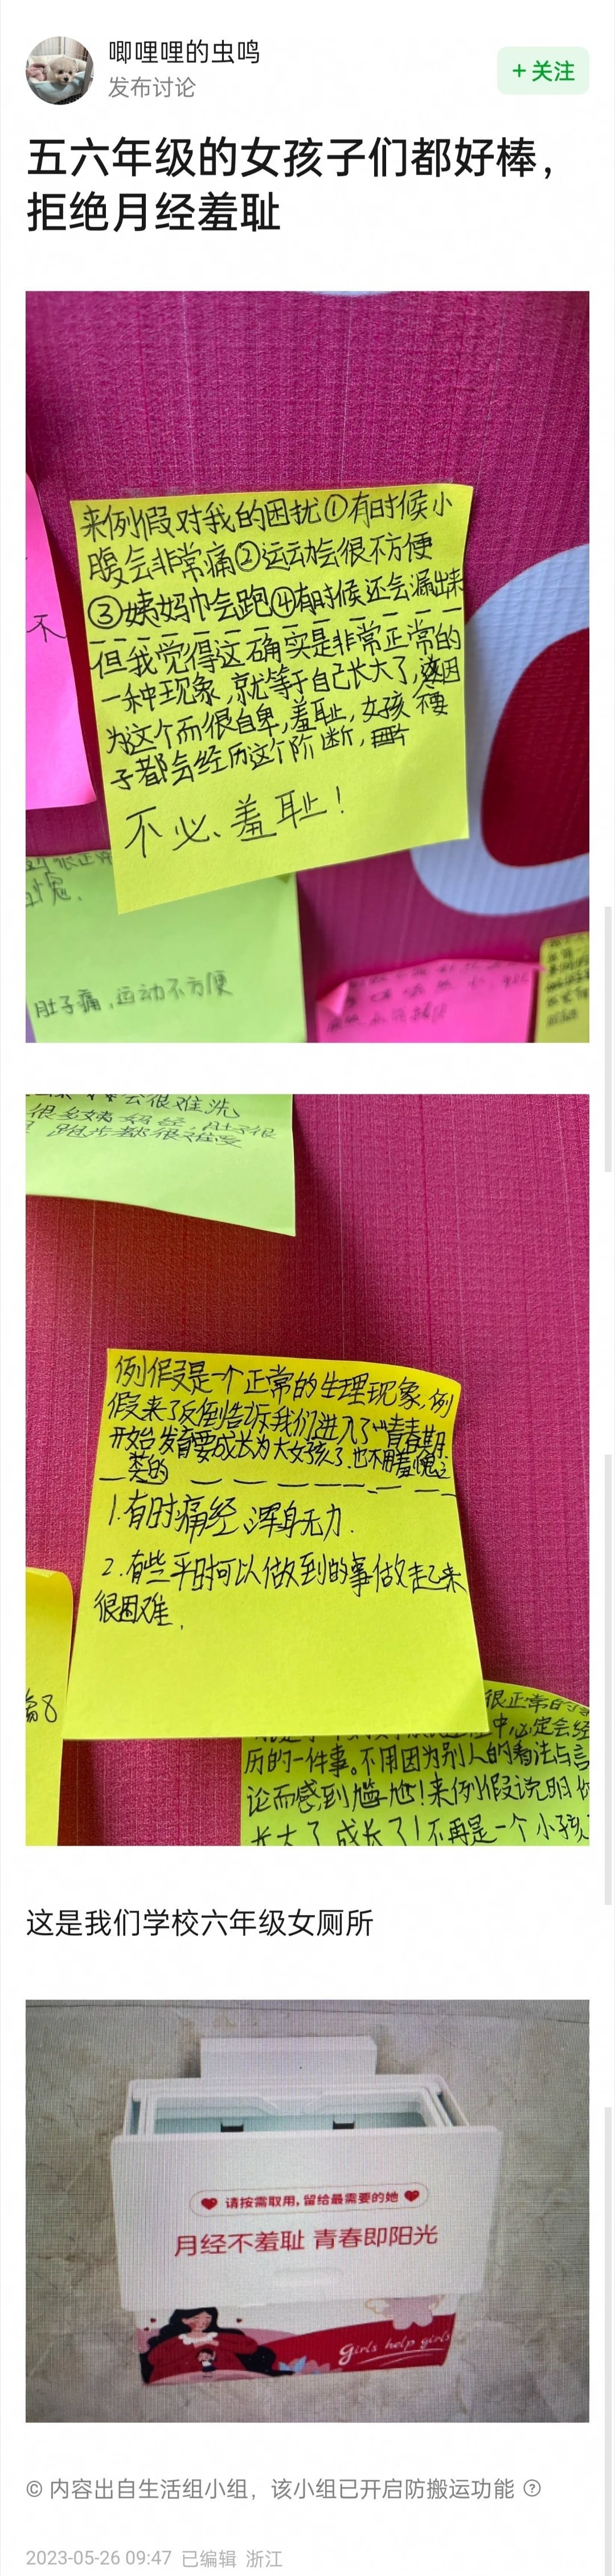 唧哩哩的虫鸣
发布讨论
+ 关注
五六年级的女孩子们都好棒，
拒绝月经羞耻
不
来例假对我的困扰①有时候小
腹会非常痛②运动会很不方便
③姨妈巾会跑④有时候还会漏出来
但我觉得这确实是非常正常的
一种现象，就等于自己长大了，因
不要
为这个而很自卑，羞耻，女孩
子都会经历这个阶断，
不必羞耻！
肚子痛，运动不方便
会很难洗
很多姨妈经，肚子很
跑步都很难受
例假是一个正常的生理现象.例
假来了反倒告诉我们进入了“青春期
开始发育要成长为大女孩了.也不用羞愧之
类的
1.有时痛经浑身无力.
2.有些平时可以做到的事做起来
很困难，
很正常的
中必定会经
历的一件事。不用因为别人的看法与言
论而感到尴尬！来例假说明你
长大了成长了！不再是一个小孩
这是我们学校六年级女厕所
请按需取用，留给最需要的她
月经不羞耻 青春即阳光
Girls help girls
© 内容出自生活组小组，该小组已开启防搬运功能 ?
2023-05-26 09:47 已编辑 浙江